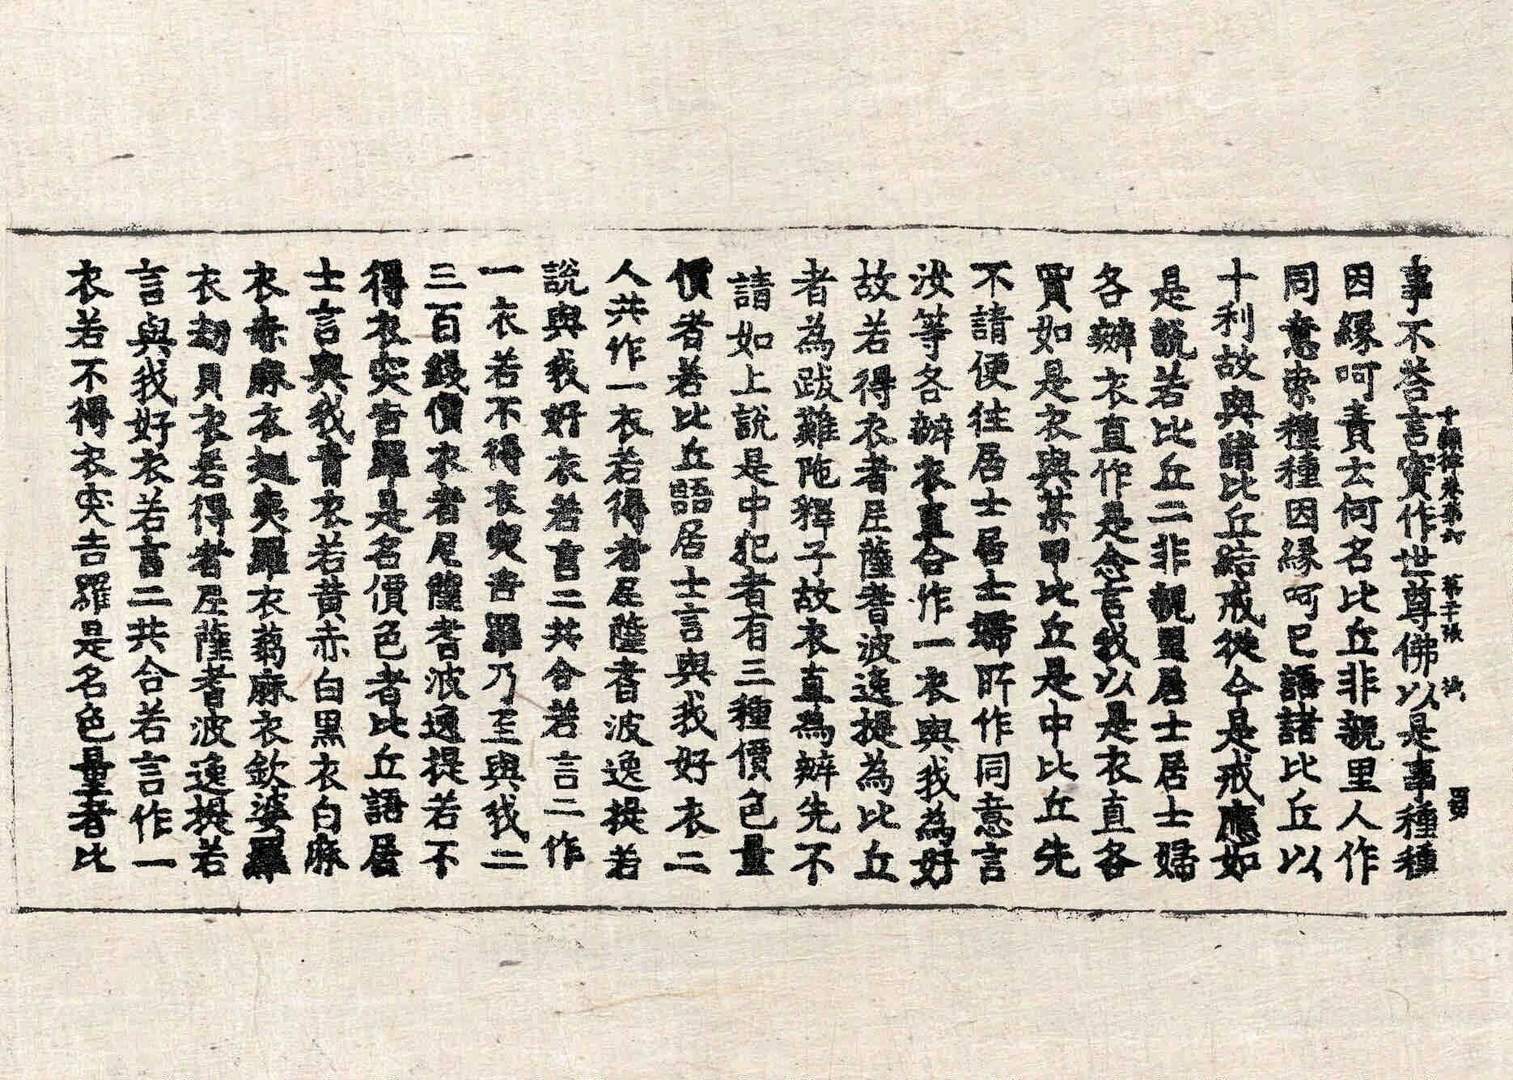 事不荅言實作世尊佛以是事種種
因緣呵責去何名比丘非親里人作
同意索種種因緣呵已語諸比丘以
十利故與諸比丘結戒從今是戒應如
是說若比丘二非親里居士居士婦
各辦衣直作是念言我以是衣直各
買如是衣與某甲比丘是中比丘先
不請便往居士居士婦所作同意言
汝等各辦衣直合作一衣與我為好
故若得衣者尼薩耆波逸提為比丘
者為跋難陁釋子故衣直為辦先不
請如上說是中犯者有三種價色量
價者若比丘語居士言與我好衣二
人共作一衣若得者尼薩耆波逸提若
說與我好衣若言二共合若言二作
一衣若不得衣突吉羅乃至與我二
三百錢價衣者尼薩耆波逸提若不
得衣突吉羅是名價色者比丘語居
士言與我青衣若黃赤白黑衣白麻
衣赤麻衣翅夷羅衣蒭麻衣欽婆羅
衣劫貝衣若得者尼薩耆波逸提若
言與我好衣若言二共合若言作一
衣若不得衣突吉羅是名色量者比